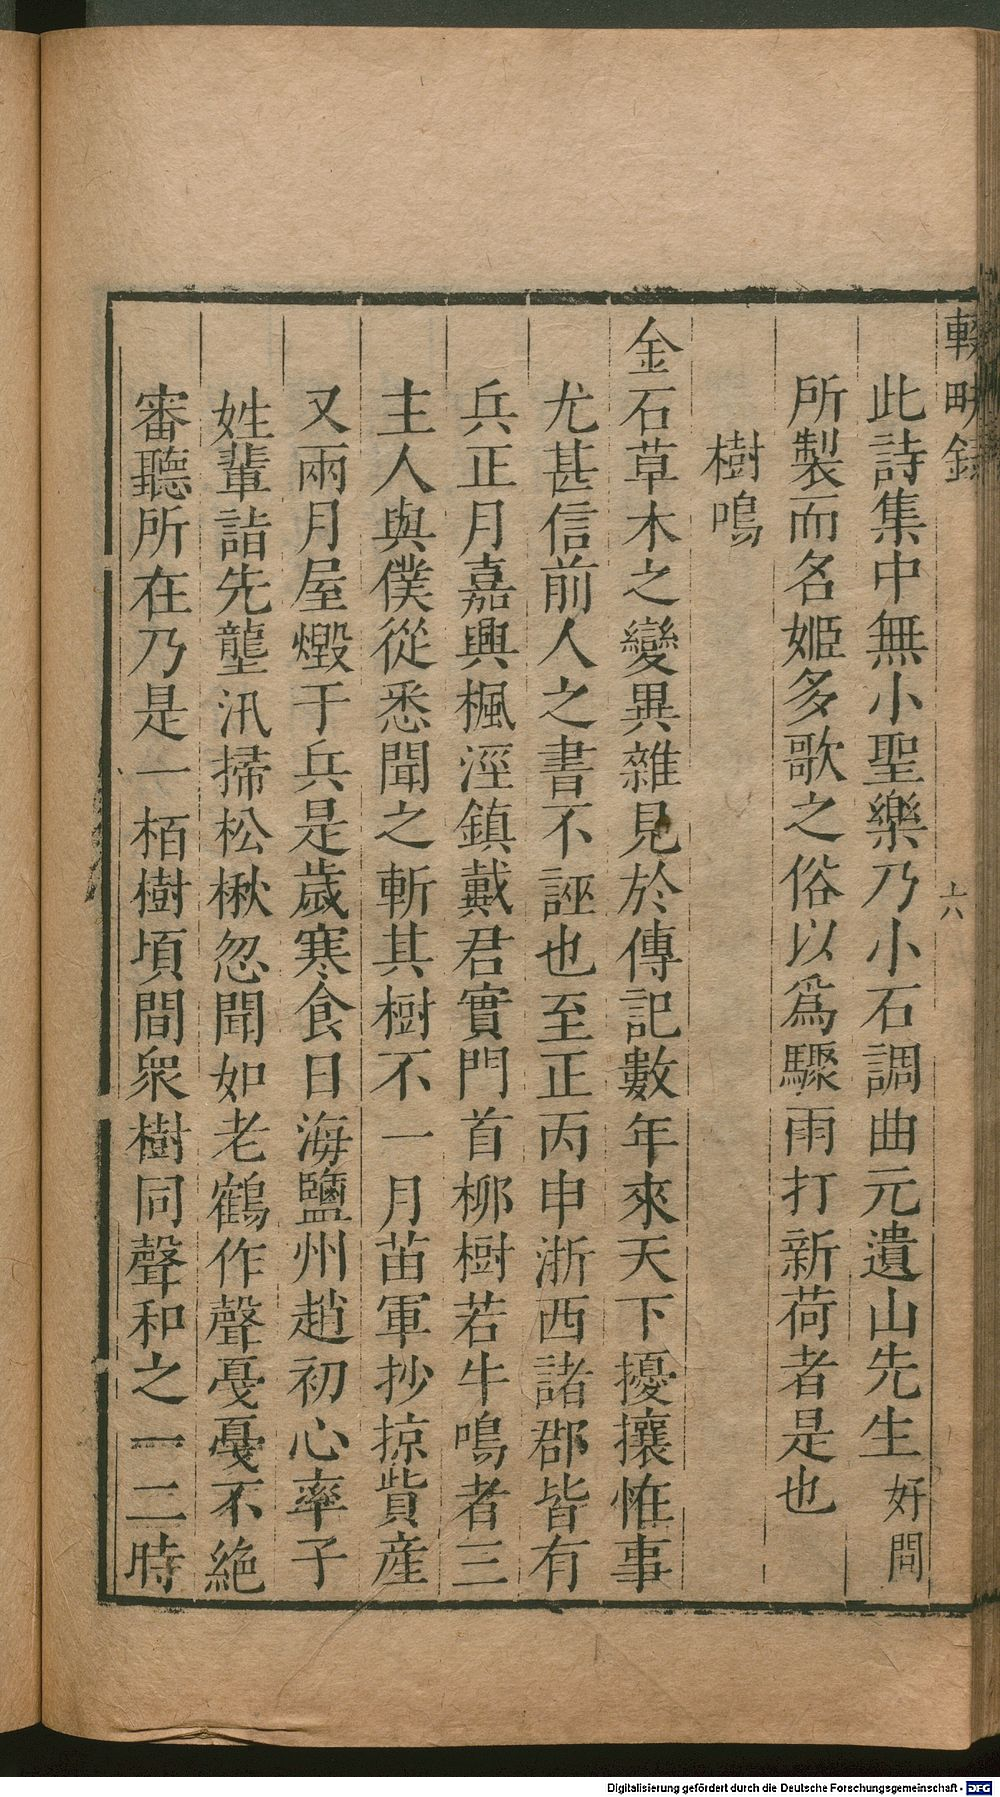 輟畊錄
六
此詩集中無小聖樂乃小石調曲元遺山先生好問
所製而名姬多歌之俗以爲驟雨打新荷者是也
樹鳴
金石草木之變異雜見於傳記數年來天下擾攘恠事
尤甚信前人之書不誣也至正丙申浙西諸郡皆有
兵正月嘉興楓涇鎮戴君實門首栁樹若牛鳴者三
主人與僕從悉聞之斬其樹不一月苗軍抄掠貲產
又兩月屋燬于兵是歲寒食日海鹽州趙初心率子
姓輩詣先壟汛掃松楸忽聞如老鶴作聲戞戞不絶
審聽所在乃是一栢樹頃間衆樹同聲和之一二時
Digitalisierung gefördert durch die Deutsche Forschungsgemeinschaft - DFG